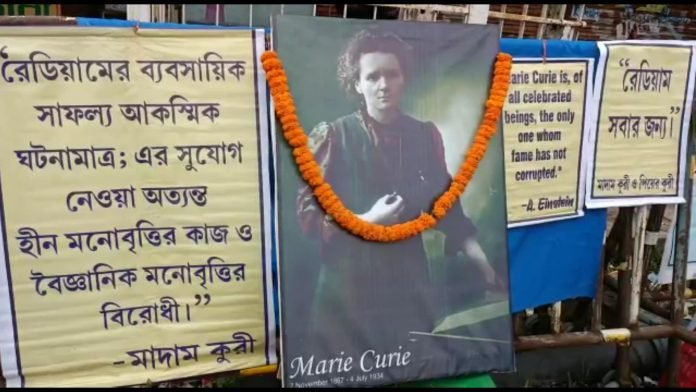 “রেডিয়ামের ব্যবসায়িক
সাফল্য আকস্মিক
ঘটনামাত্র; এর সুযোগ
নেওয়া অত্যন্ত
হীন মনোবৃত্তির কাজ ও
বৈজ্ঞানিক মনোবৃত্তির
বিরোধী।”
-মাদাম কুরী
Marie Curie
7 November 1867 - 4 July 1934
Marie Curie is, of
all celebrated
beings, the only
one whom
fame has not
corrupted."
-A. Einstein
“রেডিয়াম
সবার জন্য।”
মাদাম কুরী ও পিয়ের কুরী